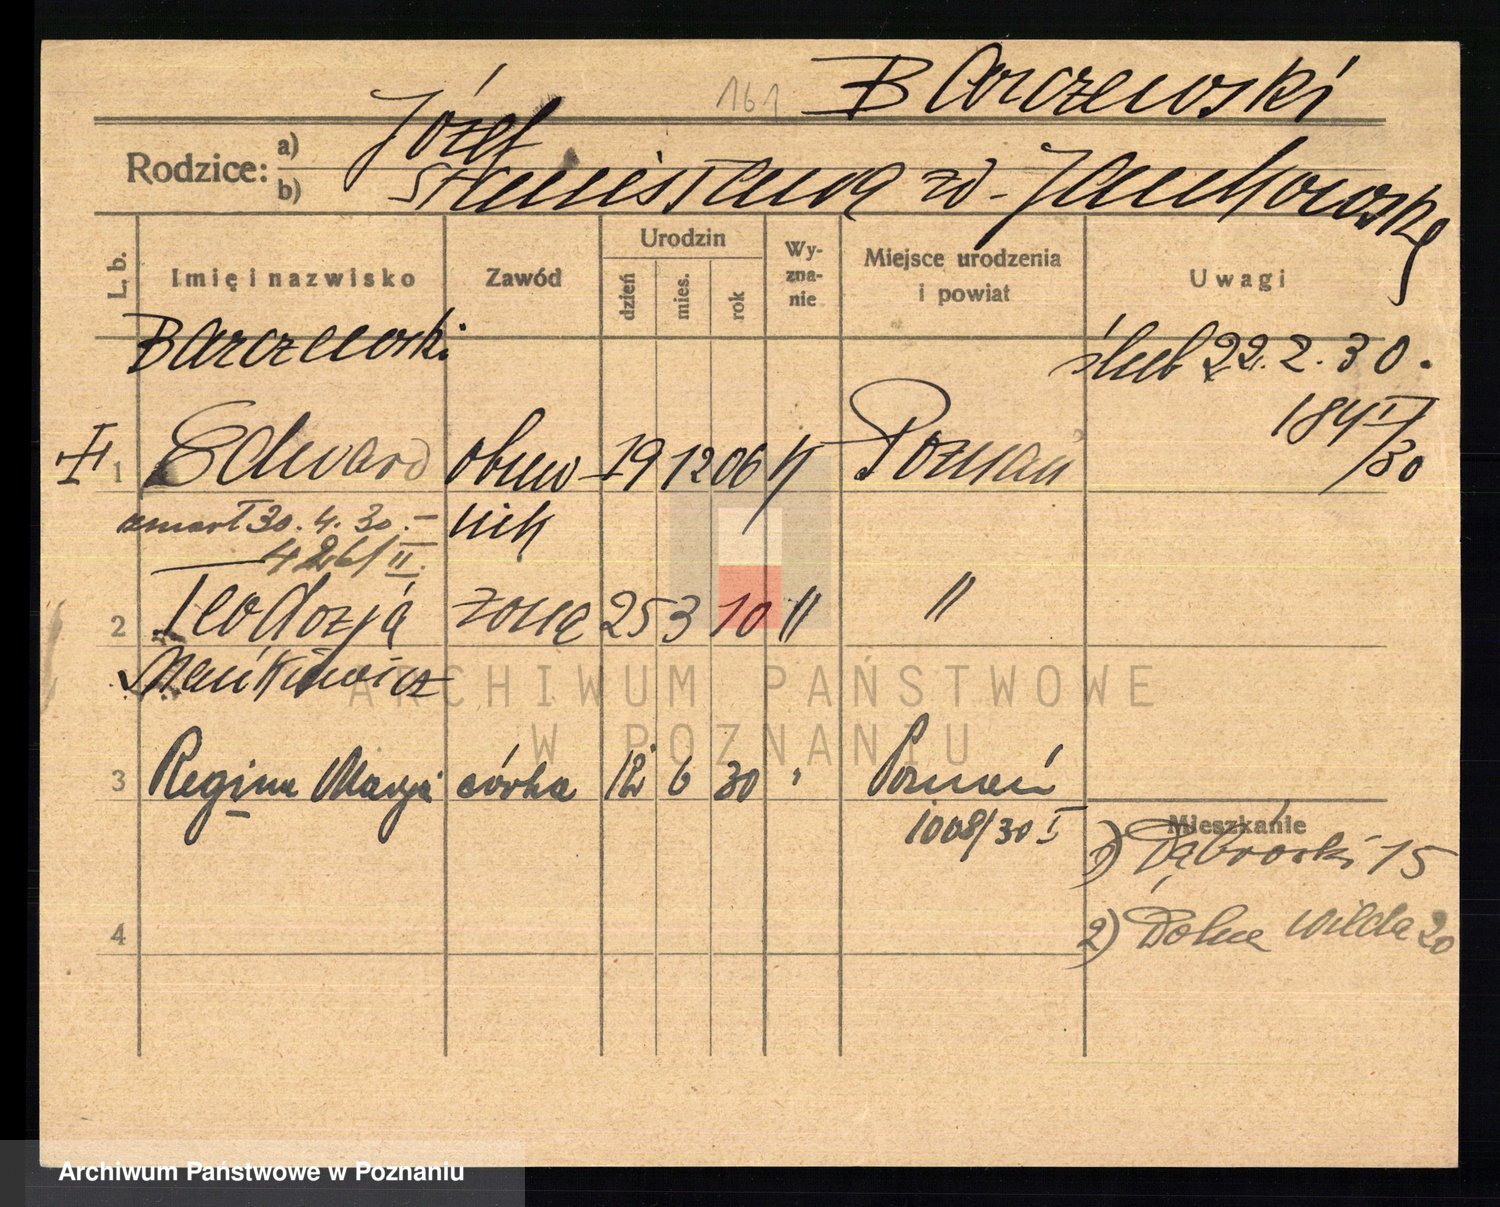 161 Barczewski
Rodzice: a) Józef
b) Stanisława zd. Jankowska
L. b. Imię i nazwisko Zawód Urodzin dzień mies. rok Wy-zna-nie Miejsce urodzenia i powiat Uwagi
Barczewski ślub 22.2.30.
184 I/30
1 Edward obuw- 19 12 06 k Poznań
zmarł 30.4.30. – nik
426/II.
2 Teodozja żona 25 3 10 " "
Mańkiewicz
3 Regina Marja córka 12 6 30 " Poznań
1008/30 I
Mieszkanie
1) Dąbroski 15
4
2) Dolna Wilda 20
ARCHIWUM PAŃSTWOWE
W POZNANIU
Archiwum Państwowe w Poznaniu